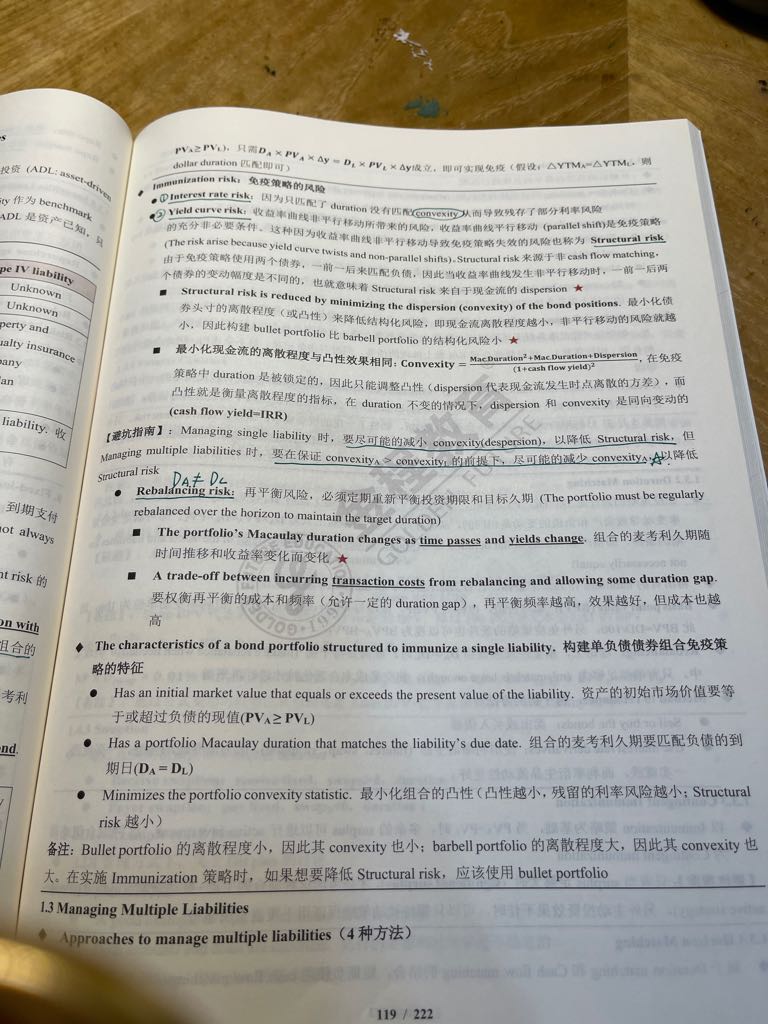 es
投资 (ADL: asset-driven
ity 作为 benchmark
ADL 是资产已知，只
pe IV liability
Unknown
Unknown
perty and
ualty insurance
pany
lan
liability. 收
到期支付
not always
nt risk 的
on with
组合的
考利
ond.
PVA≥PVL)，只需DA × PVA × Δy = DL × PVL × Δy成立，即可实现免疫（假设：△YTMA=△YTML，则
dollar duration 匹配即可）
◆ Immunization risk：免疫策略的风险
● ① Interest rate risk：因为只匹配了 duration 没有匹配 convexity 从而导致残存了部分利率风险
● ② Yield curve risk：收益率曲线非平行移动所带来的风险，收益率曲线平行移动 (parallel shift)是免疫策略
的充分非必要条件。这种因为收益率曲线非平行移动导致免疫策略失效的风险也称为 Structural risk
(The risk arise because yield curve twists and non-parallel shifts)。Structural risk 来源于非 cash flow matching,
由于免疫策略使用两个债券，一前一后来匹配负债，因此当收益率曲线发生非平行移动时，一前一后两
个债券的变动幅度是不同的，也就意味着 Structural risk 来自于现金流的 dispersion ★
■ Structural risk is reduced by minimizing the dispersion (convexity) of the bond positions. 最小化债
券头寸的离散程度（或凸性）来降低结构化风险，即现金流离散程度越小，非平行移动的风险就越
小，因此构建 bullet portfolio 比 barbell portfolio 的结构化风险小 ★
■ 最小化现金流的离散程度与凸性效果相同：Convexity = Mac.Duration²+Mac.Duration+Dispersion / (1+cash flow yield)²，在免疫
策略中 duration 是被锁定的，因此只能调整凸性（dispersion 代表现金流发生时点离散的方差），而
凸性就是衡量离散程度的指标，在 duration 不变的情况下，dispersion 和 convexity 是同向变动的
(cash flow yield=IRR)
【避坑指南】：Managing single liability 时，要尽可能的减小 convexity(despersion)，以降低 Structural risk，但
Managing multiple liabilities 时，要在保证 convexityA > convexityL 的前提下，尽可能的减少 convexityA，以降低
Structural risk
DA≠DL
● Rebalancing risk：再平衡风险，必须定期重新平衡投资期限和目标久期 (The portfolio must be regularly
rebalanced over the horizon to maintain the target duration)
■ The portfolio's Macaulay duration changes as time passes and yields change. 组合的麦考利久期随
时间推移和收益率变化而变化 ★
■ A trade-off between incurring transaction costs from rebalancing and allowing some duration gap.
要权衡再平衡的成本和频率（允许一定的 duration gap），再平衡频率越高，效果越好，但成本也越
高
◆ The characteristics of a bond portfolio structured to immunize a single liability. 构建单负债债券组合免疫策
略的特征
● Has an initial market value that equals or exceeds the present value of the liability. 资产的初始市场价值要等
于或超过负债的现值(PVA ≥ PVL)
● Has a portfolio Macaulay duration that matches the liability's due date. 组合的麦考利久期要匹配负债的到
期日(DA = DL)
● Minimizes the portfolio convexity statistic. 最小化组合的凸性（凸性越小，残留的利率风险越小；Structural
risk 越小）
备注：Bullet portfolio 的离散程度小，因此其 convexity 也小；barbell portfolio 的离散程度大，因此其 convexity 也
大。在实施 Immunization 策略时，如果想要降低 Structural risk，应该使用 bullet portfolio
1.3 Managing Multiple Liabilities
◆ Approaches to manage multiple liabilities（4 种方法）
119 / 222